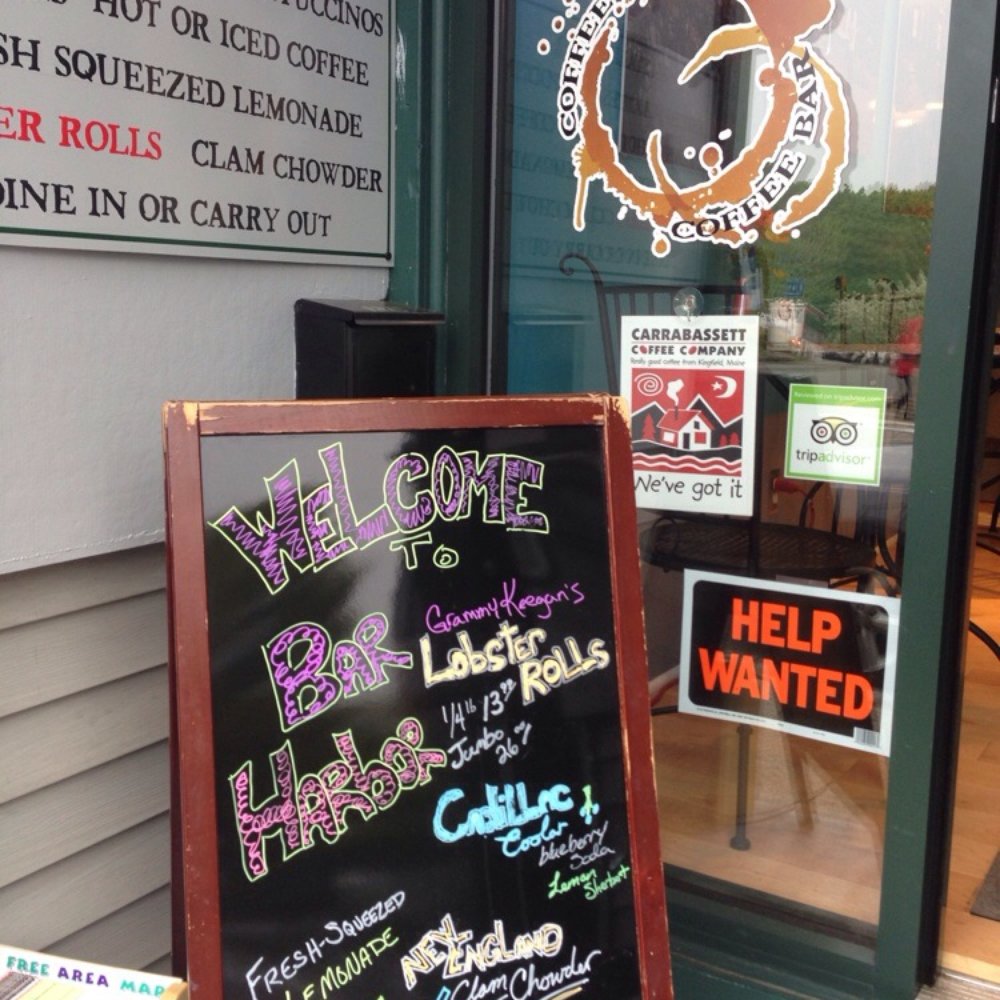 HOT OR ICED COFFEE
SQUEEZED LEMONADE
ROLLS CLAM CHOWDER
DINE IN OR CARRY OUT
COFFEE
COFFEE BAR
CARRABASSETT
COFFEE COMPANY
Really good coffee from Kingfield, Maine
We've got it
Reviewed on tripadvisor.com
tripadvisor
HELP
WANTED
WELCOME
TO
BAR
HARBOR
Grammy Keegan's
Lobster
ROLLS
1/4 lb 13
Jumbo
26
Cadillac
Cooler
blueberry
Soda
Lemon
Sherbert
FRESH-SQUEEZED
LEMONADE
NEW
ENGLAND
Clam Chowder
FREE AREA MAP